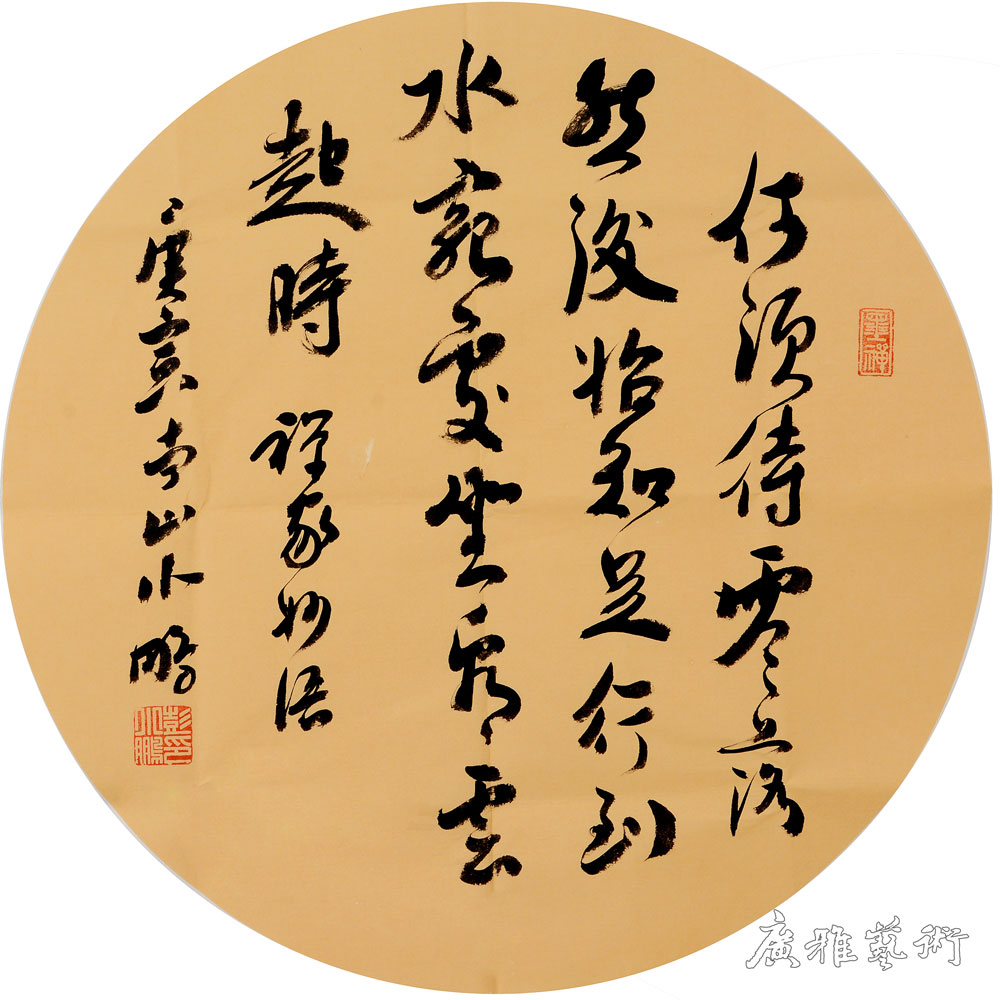 墨禪
何須待零落
然後始知足行到
水窮處坐看雲
起時 禪家妙語
庚寅 山小鵬
彭印小鵬
廣雅藝術